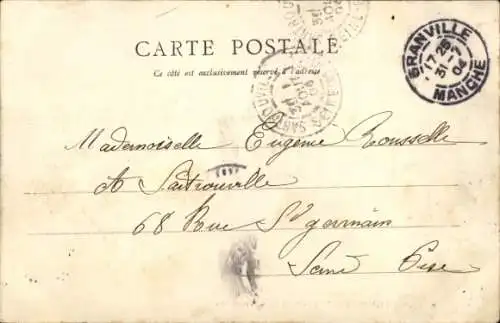 CARTE POSTALE
Ce côté est exclusivement réservé à l'adresse
GRANVILLE
17 25
31 -7
04
MANCHE
Mademoiselle Eugénie Rousselle
A Sartrouville
68 Rue St germain
Seine Oise